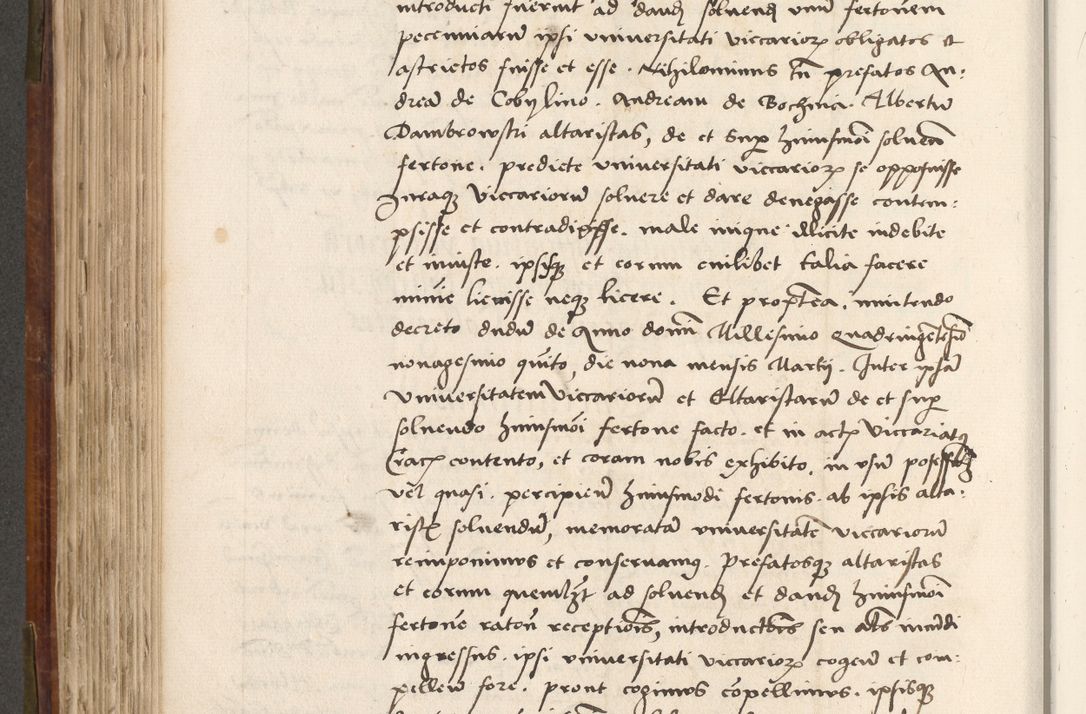 introducti fuerint ad dandū solvendū unū fertonem
pecuniarū ipsi universitati viccariorꝫ obligatos et
astrictos fuisse et esse. Nihilominus tn̄ prefatos An:
dreā de Cobylino. Andream de Bochnia. Albertū
Dambrowski altaristas, de et sup huiusmōi solvenā
fertone. predicte universitati viccariorꝫ se opposuisse
Iuraqꝫ viccariorū solvere et dare denegasse contem:
psisse et contradixisse. male inique illicite indebite
et iniuste. ipsisqꝫ et eorum cuilibet talia facere
minīe licuisse neqꝫ licere. Et propterea. innitendo
decreto dudū de Anno domī Millesimo Quadringētesīo
nonagesimo quīto, die nona mensis Martij. Inter ipsā
universitatem viccariorū et Altaristarū de et sup
solvendo huiusmōi fertone facto. et in actꝭ viccariatꝰ
Cracꝭ contento, et coram nobis exhibito. in usū possessiōꝫ
vel quasi. percipiēn huiusmodi fertonis. ab ipsis alta:
ristꝭ solvendū, memoratā universitatē viccariorū
reimponimus et conservamꝰ. Prefatosqꝫ altaristas
et eorum quemlꝫt ad solvendū et dandū huiusmōi
fertōne ratōne receptiōis, introductōis seu alts īmūdi
ingressus. ipsi universitati viccariorꝫ cogēn et com:
pellēn fore. prout cogimus cōpellimus. ipsisqꝫ